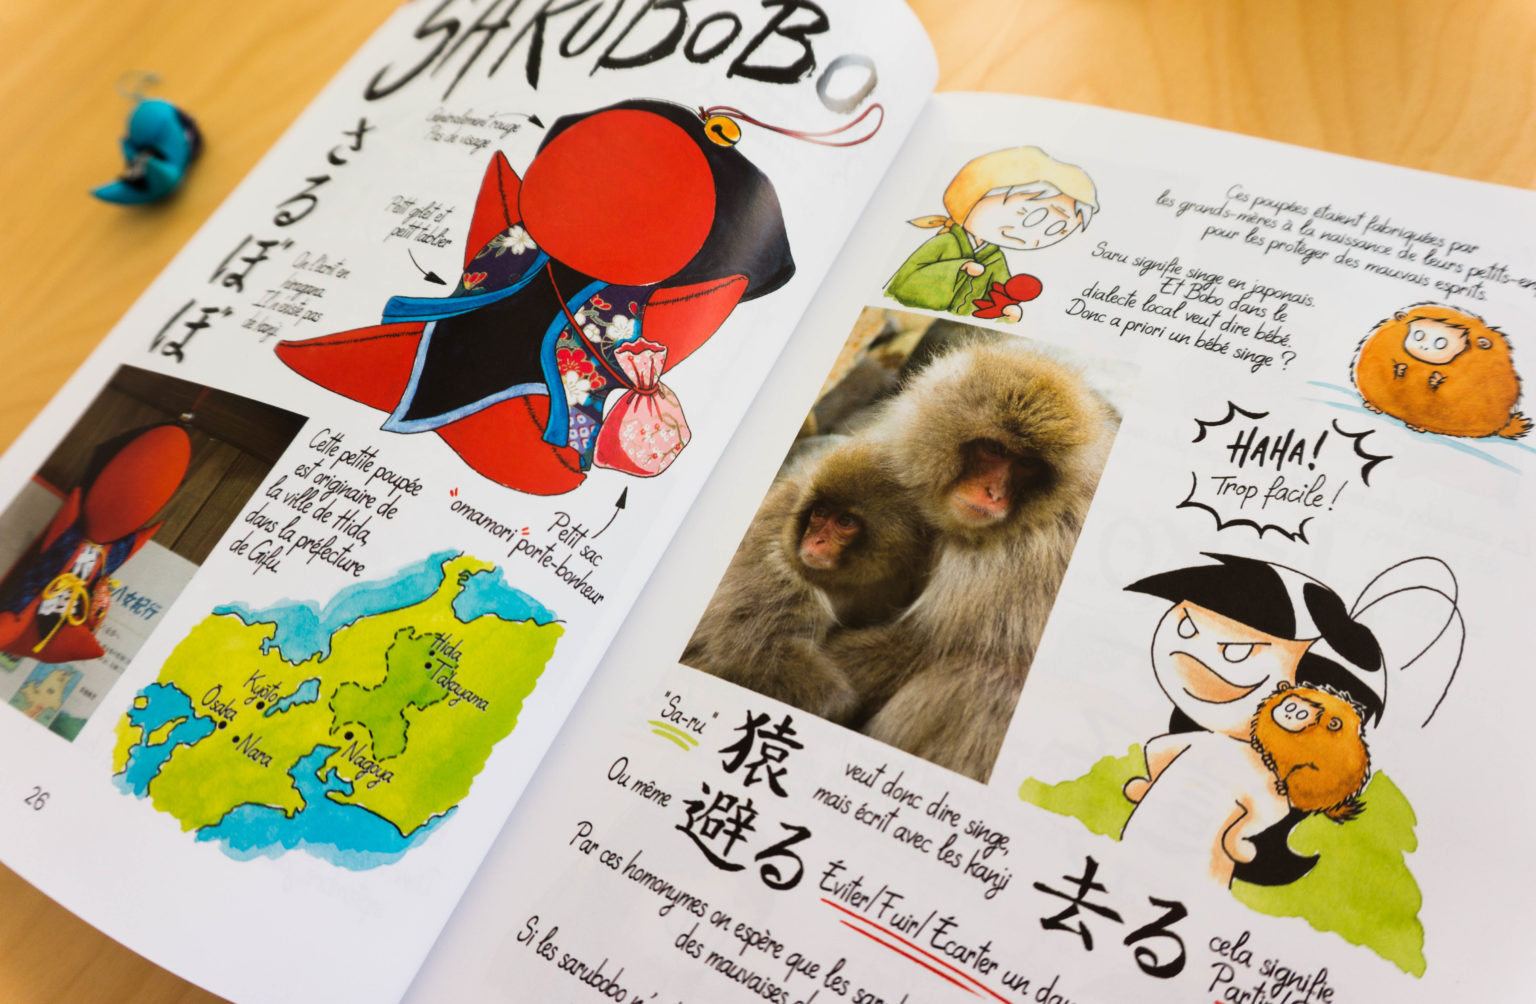 SARUBOBO
さるぼぼ
Généralement rouge
Pas de visage
Petit gilet et
petit tablier
On l'écrit en
hiragana.
Il n'existe pas
de kanji
Cette petite poupée
est originaire de
la ville de Hida,
dans la préfecture
de Gifu.
Petit sac
"omamori"
porte-bonheur
Hida
Takayama
Kyôto
Osaka
Nara
Nagoya
26
Ces poupées étaient fabriquées par
les grands-mères à la naissance de leurs petits-en
pour les protéger des mauvais esprits.
Saru signifie singe en japonais.
Et Bobo dans le
dialecte local veut dire bébé.
Donc a priori un bébé singe ?
HAHA!
Trop facile !
"Sa-ru"
猿
veut donc dire singe,
mais écrit avec les kanji
Ou même
避る
Éviter/Fuir/Écarter un
去る
cela signifie
Par ces homonymes on espère que les
des mauvaises
Si les sarubobo